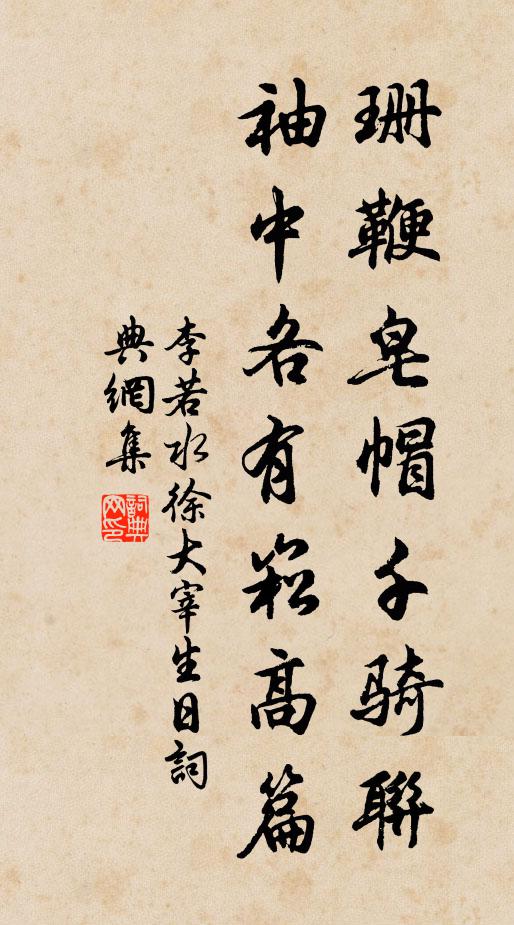 珊鞭皂帽千騎聯
袖中各有崧高篇
李若水徐大宰生日詞
典網集
詞典網印